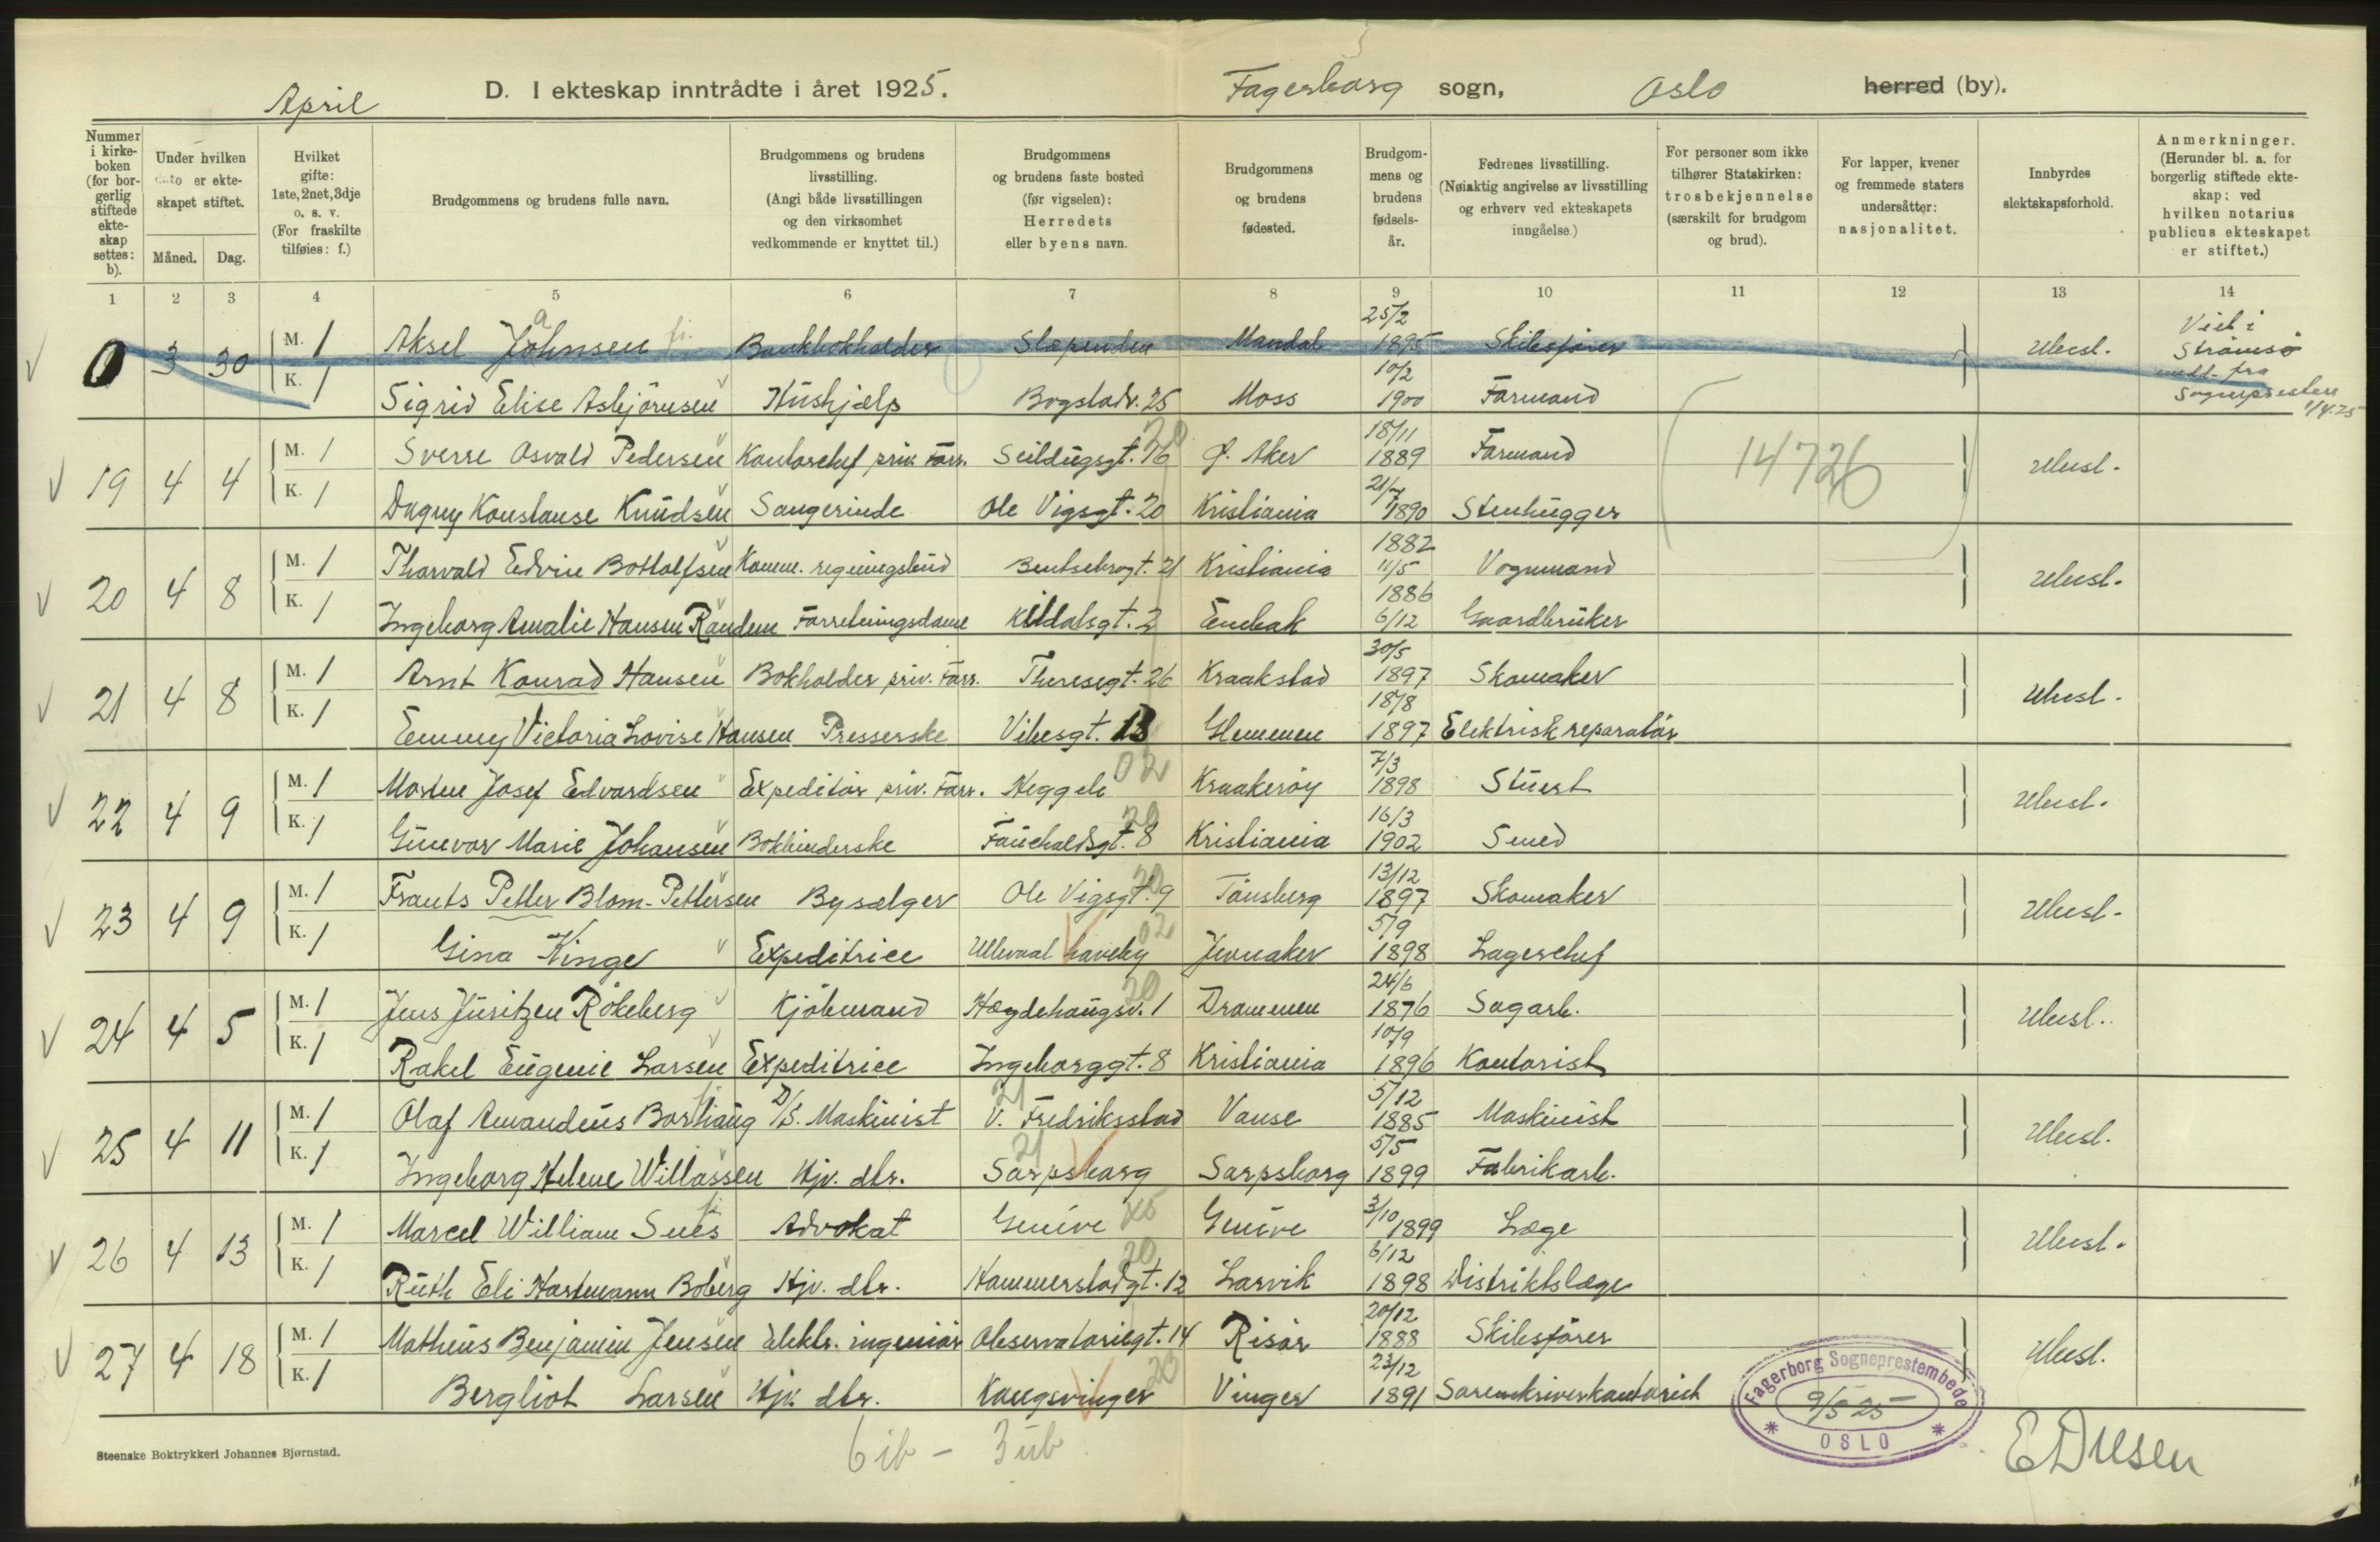 April D. I ekteskap inntrådte i året 1925. Fagerborg sogn, Oslo herred (by).
Nummer i kirkeboken (for borgerlig stiftede ekteskap settes: b).
Under hvilken dato er ekteskapet stiftet. Måned. Dag.
Hvilket gifte: 1ste, 2net, 3dje o. s. v. (For fraskilte tilføies: f.)
Brudgommens og brudens fulle navn.
Brudgommens og brudens livsstilling. (Angi både livsstillingen og den virksomhet vedkommende er knyttet til.)
Brudgommens og brudens faste bosted (før vigselen): Herredets eller byens navn.
Brudgommens og brudens fødested.
Brudgommens og brudens fødselsår.
Fedrenes livsstilling. (Nøiaktig angivelse av livsstilling og erhverv ved ekteskapets inngåelse.)
For personer som ikke tilhører Statskirken: trosbekjennelse (særskilt for brudgom og brud).
For lapper, kvener og fremmede staters undersåtter: nasjonalitet.
Innbyrdes slektskapsforhold.
Anmerkninger. (Herunder bl. a. for borgerlig stiftede ekteskap: ved hvilken notarius publicus ekteskapet er stiftet.)
1 2 3 4 5 6 7 8 9 10 11 12 13 14
0 3 30 M. 1 Aksel Johnsen Bankbokholder Slependen Mandal 25/2 1895 Skibsfører Ubesl. Viet i Strømsø medd. fra Sognepresten 1/4.25
K. 1 Sigrid Elise Asbjørnsen Hushjelp Bogstadv. 25 Moss 10/2 1900 Formand
19 4 4 M. 1 Sverre Osvald Pedersen Kontorchef priv. Forr. Seildugsgt. 16 Ø. Aker 18/11 1889 Formand 14726 Ubesl.
K. 1 Dagny Konstanse Knudsen Sangerinde Ole Vigsgt. 20 Kristiania 21/7 1890 Stenhugger
20 4 8 M. 1 Thorvald Edvin Bottolfsen Komm. regningsbud Bentsebrogt. 21 Kristiania 1882 11/5 Vognmand Ubesl.
K. 1 Ingeborg Amalie Hansen Randem Forretningsdame Kildalsgt. 2 Enebak 1886 6/12 Gaardbruker
21 4 8 M. 1 Arnt Konrad Hansen Bokholder priv. Forr. Theresegt. 26 Kraakstad 30/5 1897 Skomaker Ubesl.
K. 1 Emmy Victoria Lovise Hansen Presserske Vibesgt. 13 Glemmen 18/8 1897 Elektrisk reparatør
22 4 9 M. 1 Morten Josef Edvardsen Expeditør priv. Forr. Heggeli 02 Kraakerøy 7/3 1898 Stuert Ubesl.
K. 1 Gunvor Marie Johansen Bokbinderske Fauchaldsgt. 8 20 Kristiania 16/3 1902 Smed
23 4 9 M. 1 Frants Petter Blom-Pettersen Bysælger Ole Vigsgt. 9 20 Tønsberg 13/12 1897 Skomaker Ubesl.
K. 1 Gina Kinge Expeditrice Ullevaal haveby 02 Jevnaker 5/9 1898 Lagerchef
24 4 5 M. 1 Jens Juritzen Rökeberg Kjøbmand Hægdehaugsv. 1 20 Drammen 24/6 1876 Sagarb. Ubesl.
K. 1 Rakel Eugenie Larsen Expeditrice Ingeborggt. 8 Kristiania 10/9 1896 Kontorist
25 4 11 M. 1 Olaf Amandeus Borhaug D/S. Maskinist V. Fredriksstad 21 Vanse 5/12 1885 Maskinist Ubesl.
K. 1 Ingeborg Helene Willassen Hjv. dtr. Sarpsborg 21 Sarpsborg 5/5 1899 Fabrikarb.
26 4 13 M. 1 Marcel William Sues Advokat Genève Genève 3/10 1899 Læge Ubesl.
K. 1 Ruth Eli Hartmann Boberg Hjv. dtr. Hammerstadgt. 12 20 Larvik 6/12 1898 Distriktslæge
27 4 18 M. 1 Matheus Benjamin Jensen elektr. ingeniør Observatoriegt. 14 Risør 20/12 1888 Skibsfører Ubesl.
K. 1 Bergliot Larsen Hjv. dtr. Kongsvinger Vinger 23/12 1891 Sorenskriverkontorist
Fagerborg Sogneprestembede 9/5 25 OSLO
Steenske Boktrykkeri Johannes Bjørnstad.
6 ib - 3 ub